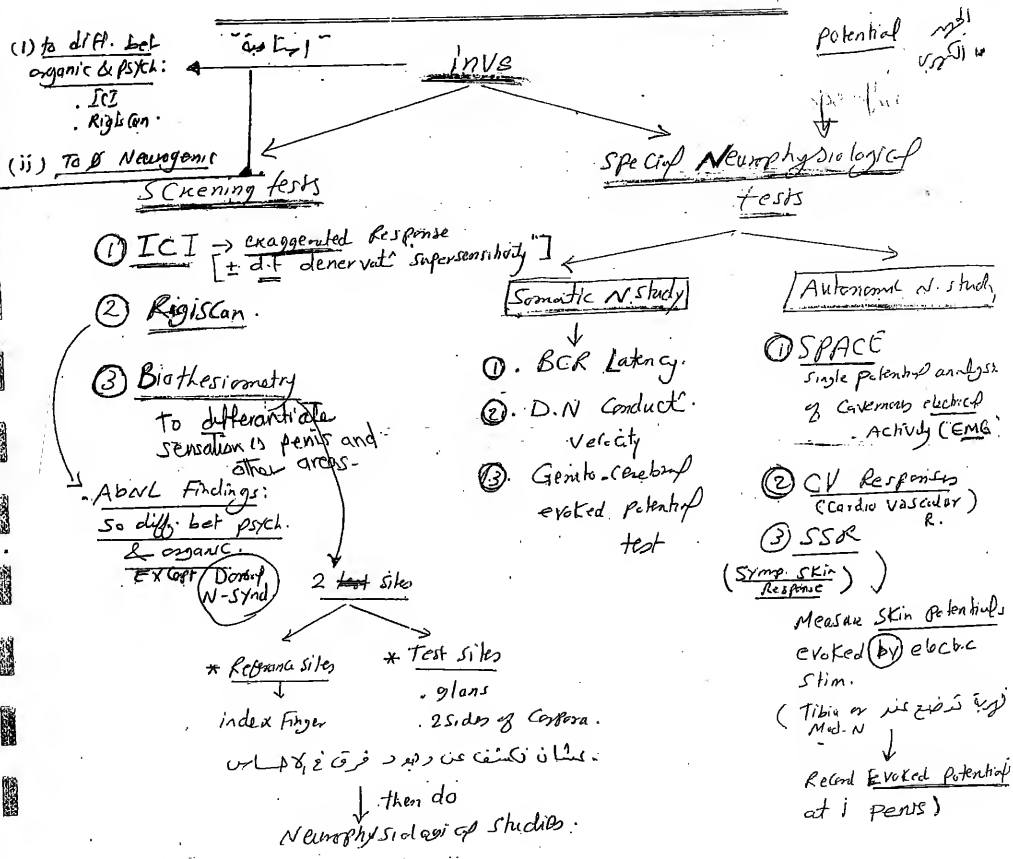 (i) to diff. bet
organic & psych:
. ICI
. RigisCan.
(ii) To Ø Neurogenic
invs
potential
Screening tests
① ICI → exaggerated Response
[± d.t denervat^n supersensitivity"]
② RigisCan.
③ Biothesiometry
To differentiate
sensation is penis and
other areas.
. AbNL Findings:
So diff. bet psych.
& organic.
Except Dorsal
N-synd
2 sites
* Reference sites
index Finger
* Test sites
. glans
. 2 sides of Corpora.
عشان نكشف عن وجود فرق في الاحساس
then do
Neurophysiological studies.
Special Neurophysiological
tests
Somatic N. study
①. BCR Latency.
②. D.N Conduct^n.
Velocity
③. Genito-cerebral
evoked potential
test
Autonomic N. study
① SPACE
single potential analysis
of Cavernous electrical
Activity (EMG
② CV Responses
(Cardio vascular)
R.
③ SSR
(Symp. Skin
Response)
Measure Skin potentials
evoked by electric
stim.
(Tibia or
Med. N
Record Evoked potential
at i penis)